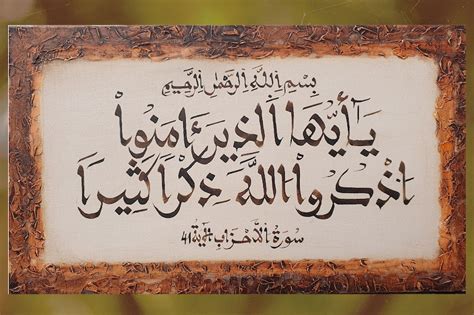 بِسْمِ اِللَّهِ اِلرَّحْمَٰنِ اِلرَّحِيمِ
يَٰٓأَيُّهَا اَلذِينَ ءَامَنُواْ
اُذْكُرُواْ اُللَّهَ ذِكْراٗ كَثِيراٗ
سورة الأحزاب الآية 41